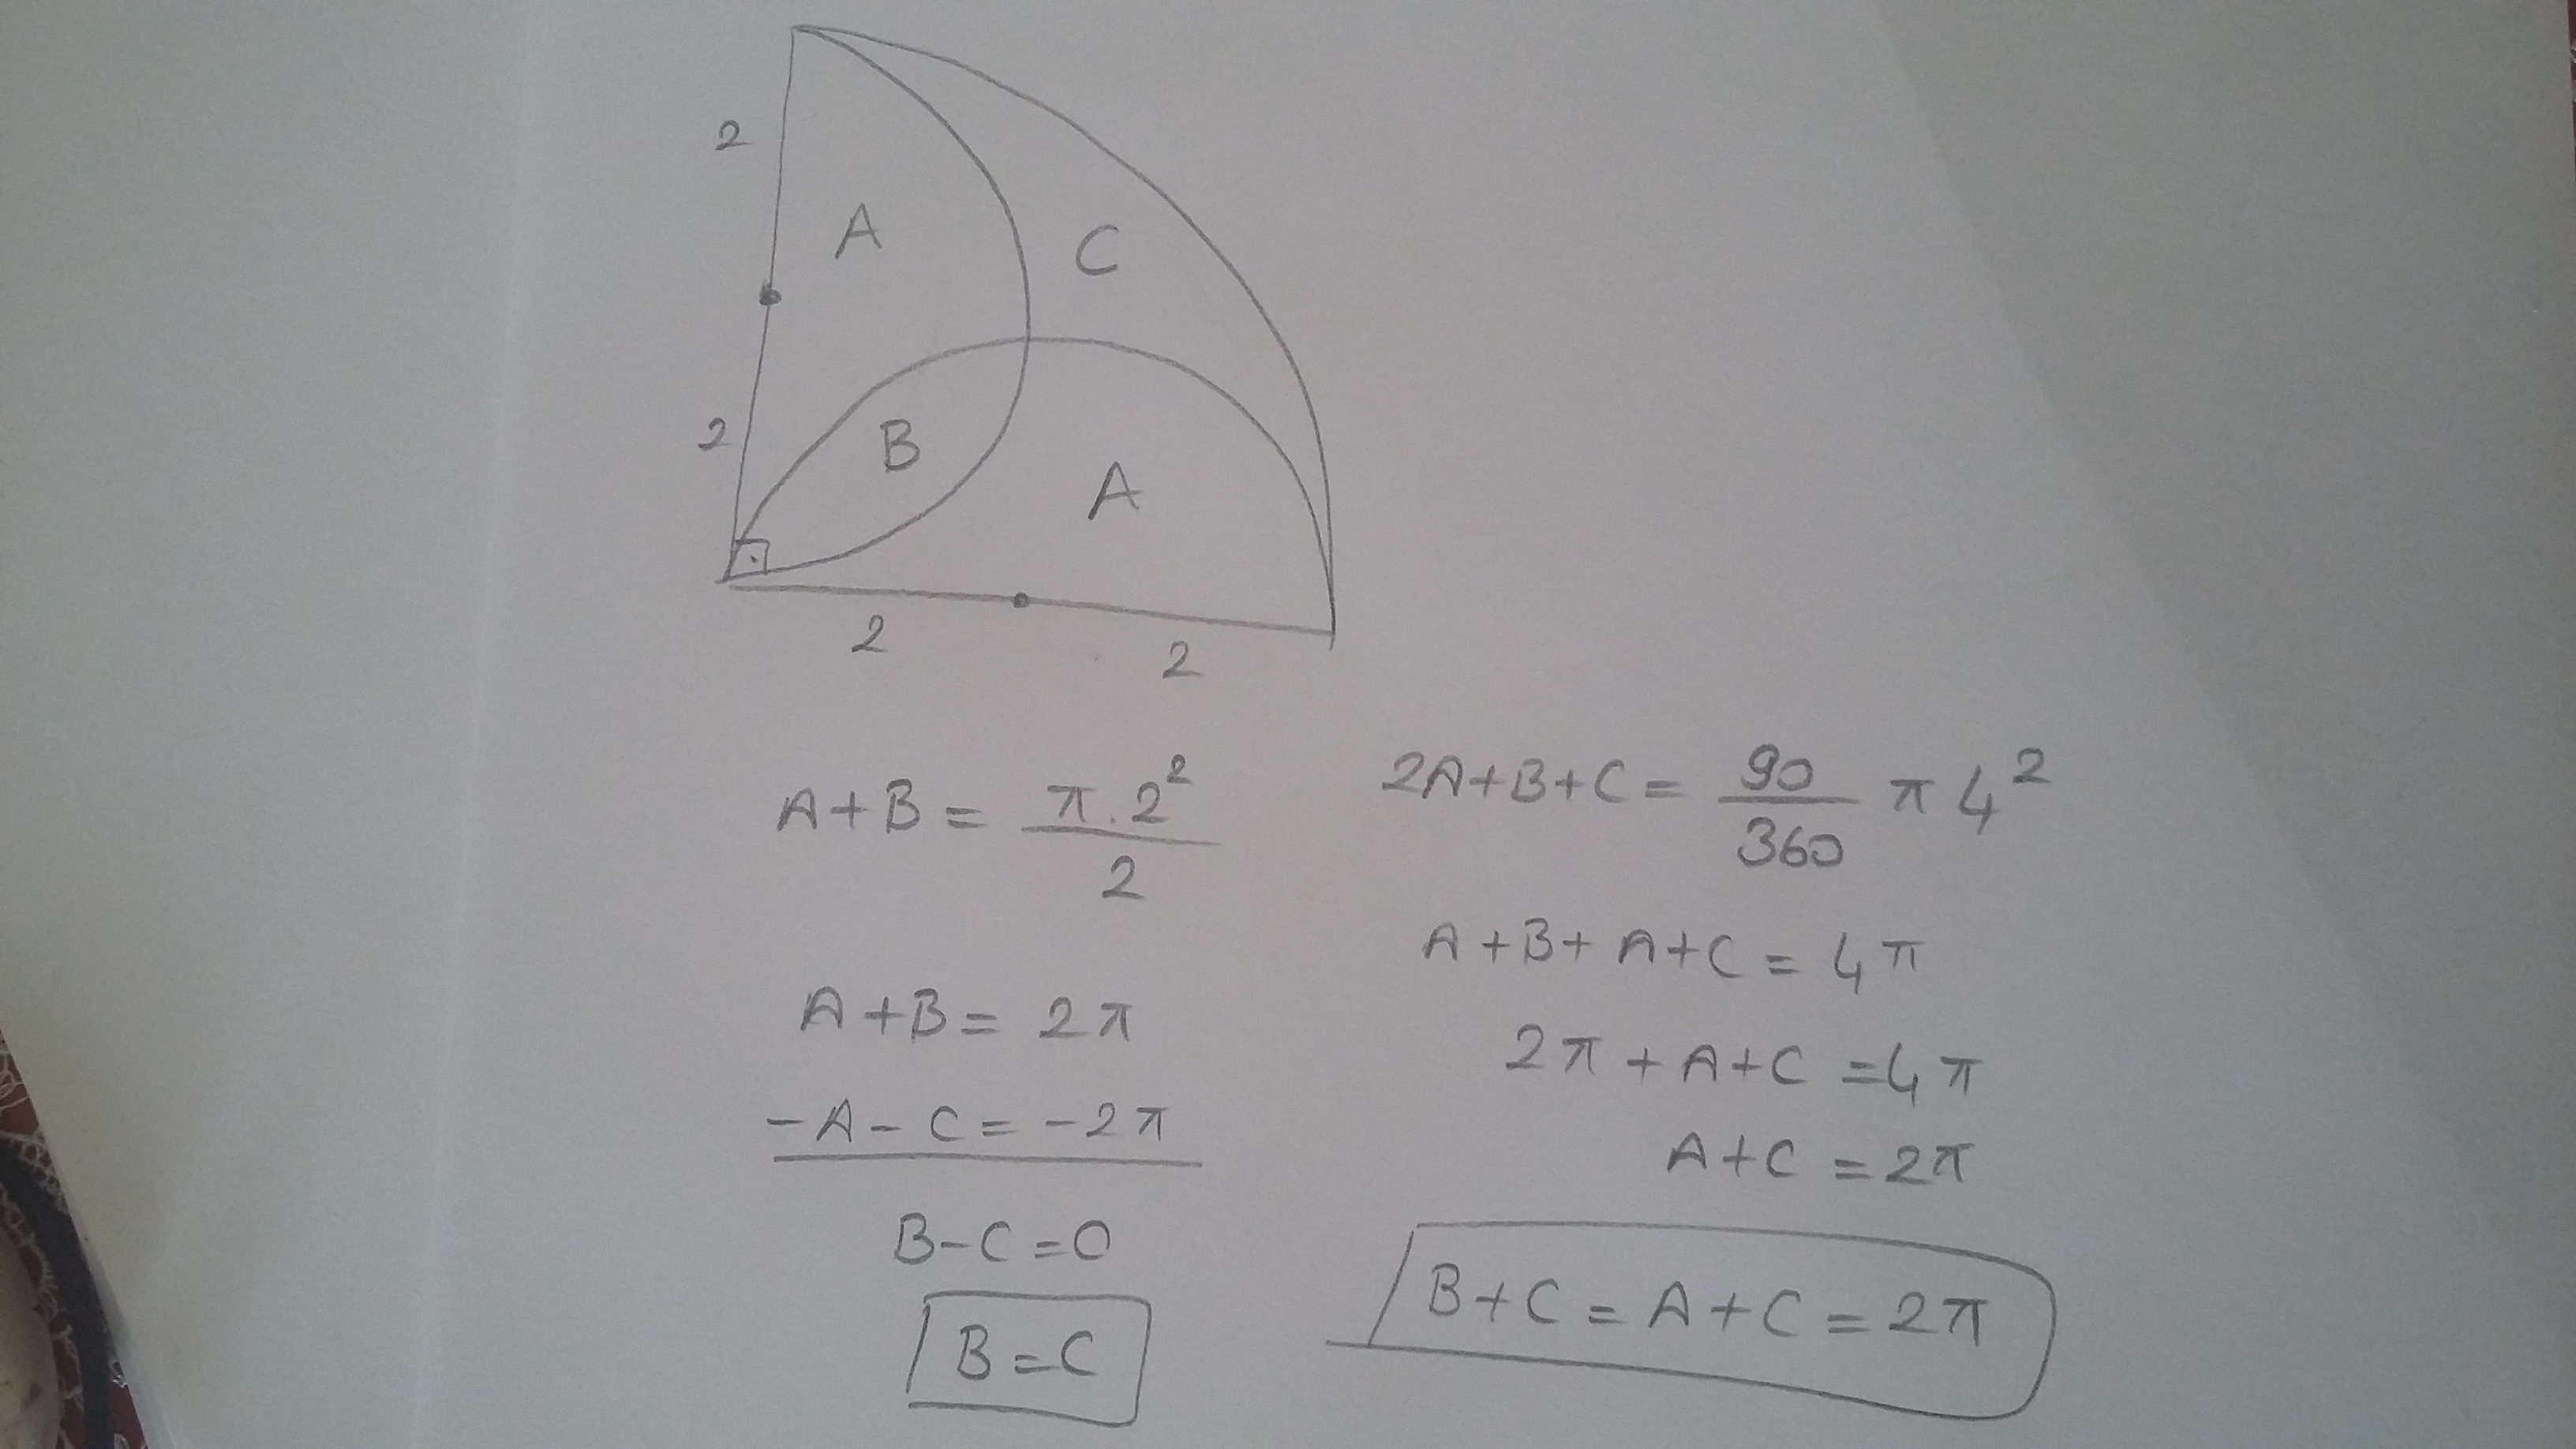 2
A
C
2
B
A
2
2
A+B = π.2²/2
A+B = 2π
-A-C = -2π
B-C=0
B=C
2A+B+C = 90/360 π 4²
A+B+A+C = 4π
2π + A+C = 4π
A+C = 2π
B+C = A+C = 2π